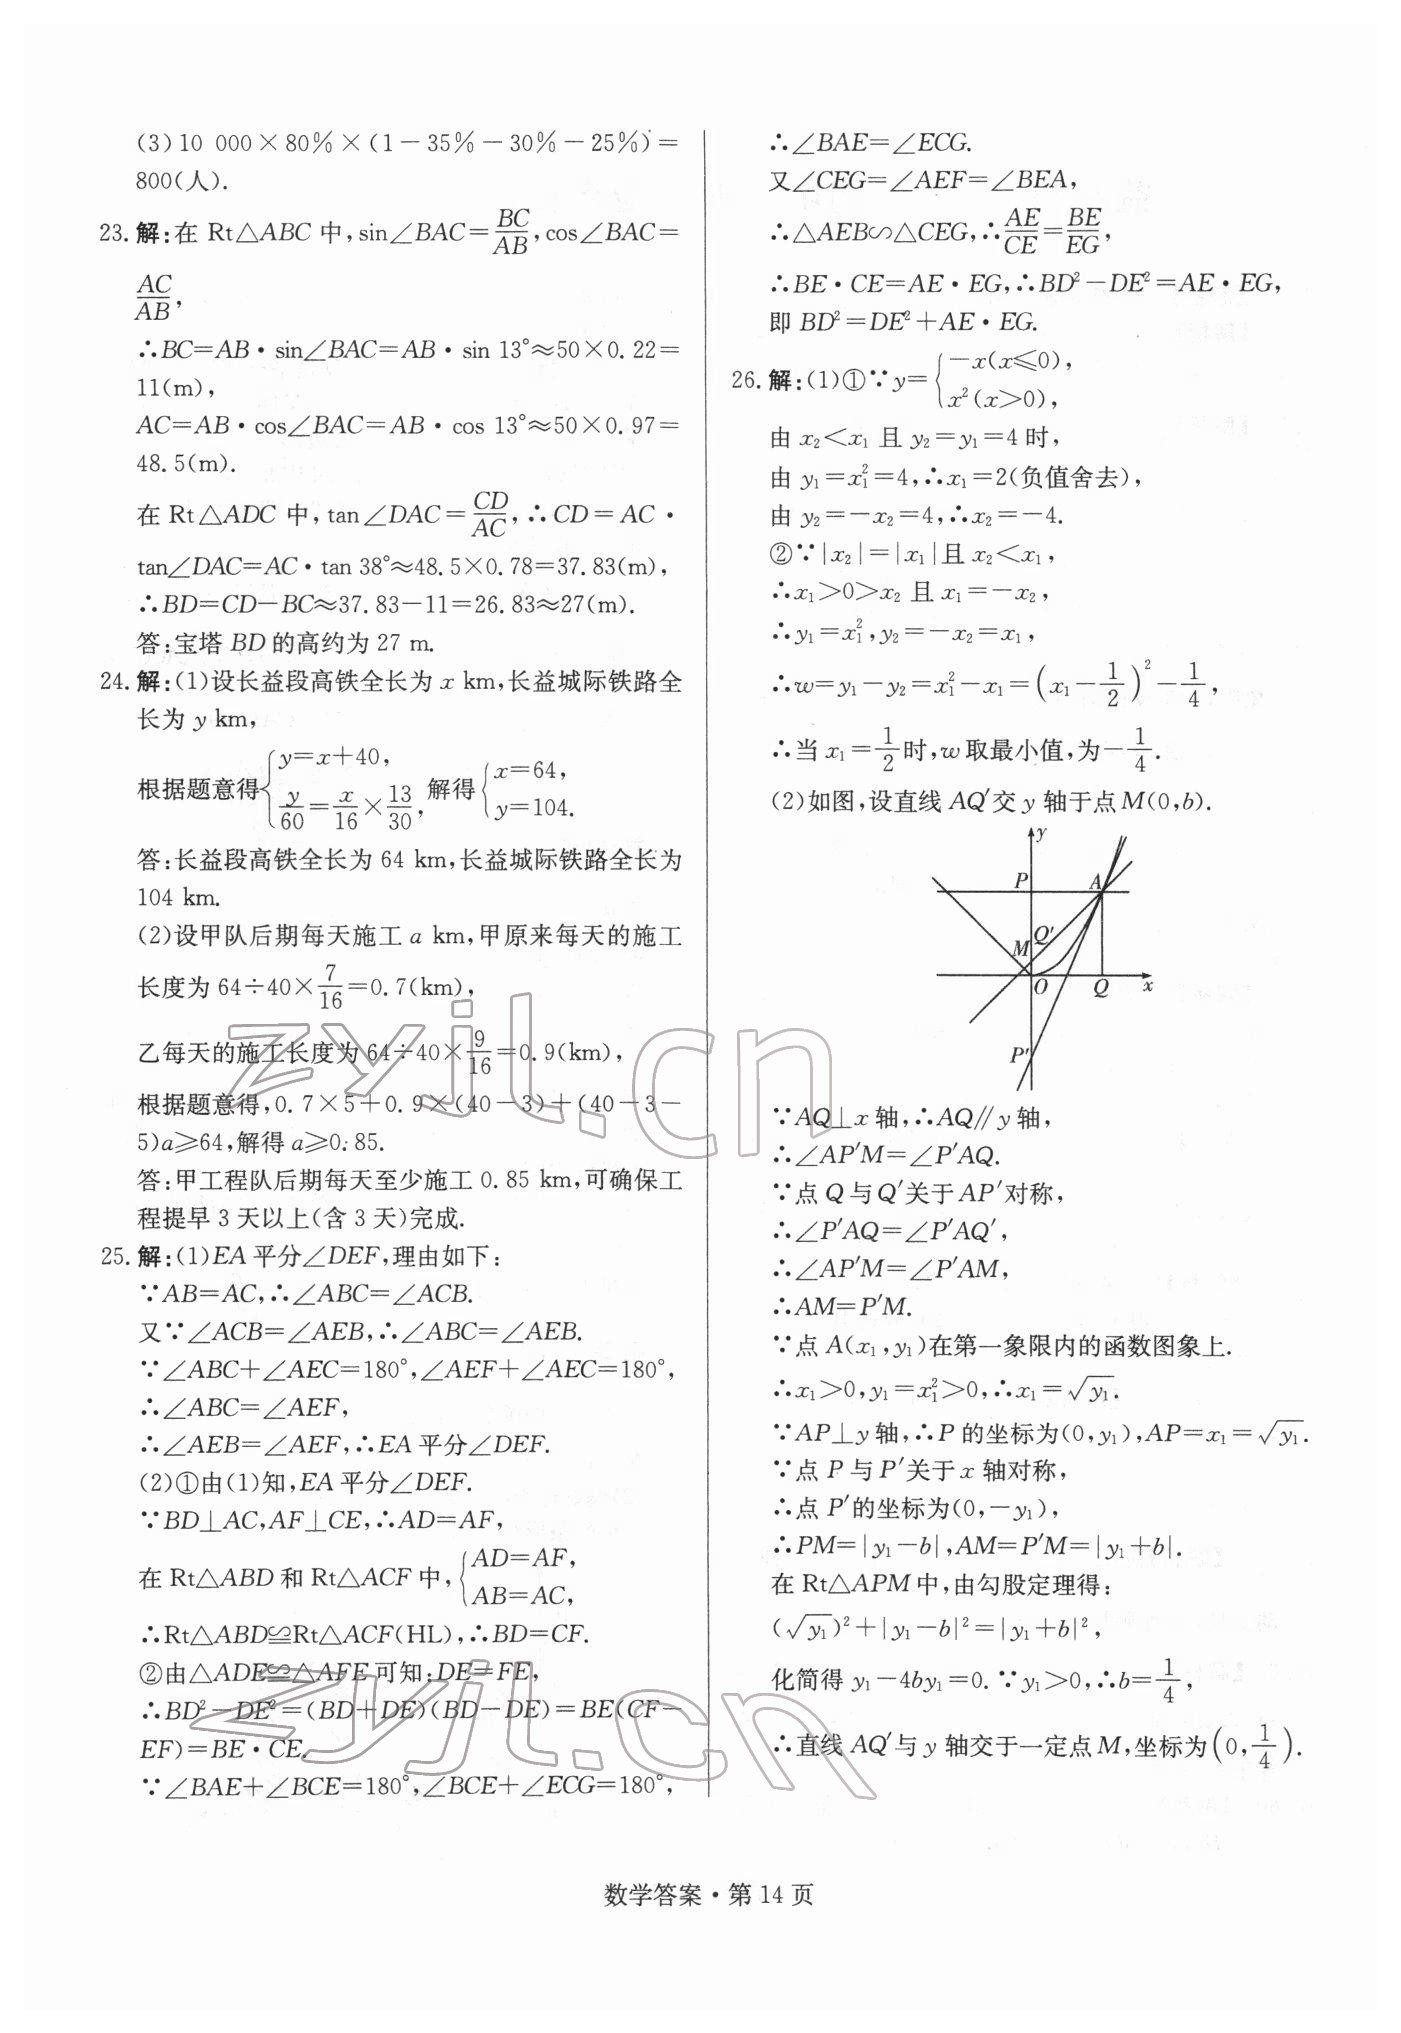 (3)10 000×80%×(1-35%-30%-25%)=
800(人).
23. 解:在 Rt△ABC 中,sin∠BAC=BC/AB,cos∠BAC=
AC/AB,
∴BC=AB·sin∠BAC=AB·sin 13°≈50×0.22=
11(m),
AC=AB·cos∠BAC=AB·cos 13°≈50×0.97=
48.5(m).
在 Rt△ADC 中,tan∠DAC=CD/AC,∴CD=AC·
tan∠DAC=AC·tan 38°≈48.5×0.78=37.83(m),
∴BD=CD-BC≈37.83-11=26.83≈27(m).
答:宝塔 BD 的高约为 27 m.
24. 解:(1)设长益段高铁全长为 x km,长益城际铁路全
长为 y km,
根据题意得{y=x+40, y/60=x/16×13/30, 解得{x=64, y=104.
答:长益段高铁全长为 64 km,长益城际铁路全长为
104 km.
(2)设甲队后期每天施工 a km,甲原来每天的施工
长度为 64÷40×7/16=0.7(km),
乙每天的施工长度为 64÷40×9/16=0.9(km),
根据题意得,0.7×5+0.9×(40-3)+(40-3-
5)a≥64,解得 a≥0.85.
答:甲工程队后期每天至少施工 0.85 km,可确保工
程提早 3 天以上(含 3 天)完成.
25. 解:(1)EA 平分∠DEF,理由如下:
∵AB=AC,∴∠ABC=∠ACB.
又∵∠ACB=∠AEB,∴∠ABC=∠AEB.
∵∠ABC+∠AEC=180°,∠AEF+∠AEC=180°,
∴∠ABC=∠AEF,
∴∠AEB=∠AEF,∴EA 平分∠DEF.
(2)①由(1)知,EA 平分∠DEF.
∵BD⊥AC,AF⊥CE,∴AD=AF,
在 Rt△ABD 和 Rt△ACF 中,{AD=AF, AB=AC,
∴Rt△ABD≌Rt△ACF(HL),∴BD=CF.
②由△ADE≌△AFE 可知:DE=FE,
∴BD²-DE²=(BD+DE)(BD-DE)=BE(CF-
EF)=BE·CE.
∵∠BAE+∠BCE=180°,∠BCE+∠ECG=180°,
∴∠BAE=∠ECG.
又∠CEG=∠AEF=∠BEA,
∴△AEB∽△CEG,∴AE/CE=BE/EG,
∴BE·CE=AE·EG,∴BD²-DE²=AE·EG,
即 BD²=DE²+AE·EG.
26. 解:(1)①∵y={-x(x≤0), x²(x>0),
由 x₂<x₁ 且 y₂=y₁=4 时,
由 y₁=x₁²=4,∴x₁=2(负值舍去),
由 y₂=-x₂=4,∴x₂=-4.
②∵|x₂|=|x₁|且 x₂<x₁,
∴x₁>0>x₂ 且 x₁=-x₂,
∴y₁=x₁²,y₂=-x₂=x₁,
∴w=y₁-y₂=x₁²-x₁=(x₁-1/2)²-1/4,
∴当 x₁=1/2时,w取最小值,为-1/4.
(2)如图,设直线 AQ′交 y 轴于点 M(0,b).
y
P A
Q′
M
O Q x
P′
∵AQ⊥x 轴,∴AQ∥y 轴,
∴∠AP′M=∠P′AQ.
∵点 Q 与 Q′关于 AP′对称,
∴∠P′AQ=∠P′AQ′,
∴∠AP′M=∠P′AM,
∴AM=P′M.
∵点 A(x₁,y₁)在第一象限内的函数图象上.
∴x₁>0,y₁=x₁²>0,∴x₁=√y₁.
∵AP⊥y 轴,∴P 的坐标为(0,y₁),AP=x₁=√y₁.
∵点 P 与 P′关于 x 轴对称,
∴点 P′的坐标为(0,-y₁),
∴PM=|y₁-b|,AM=P′M=|y₁+b|.
在 Rt△APM 中,由勾股定理得:
(√y₁)²+|y₁-b|²=|y₁+b|²,
化简得 y₁-4by₁=0.∵y₁>0,∴b=1/4,
∴直线 AQ′与 y 轴交于一定点 M,坐标为(0,1/4).
数学答案·第 14 页
zyjl.cn
zyjl.cn